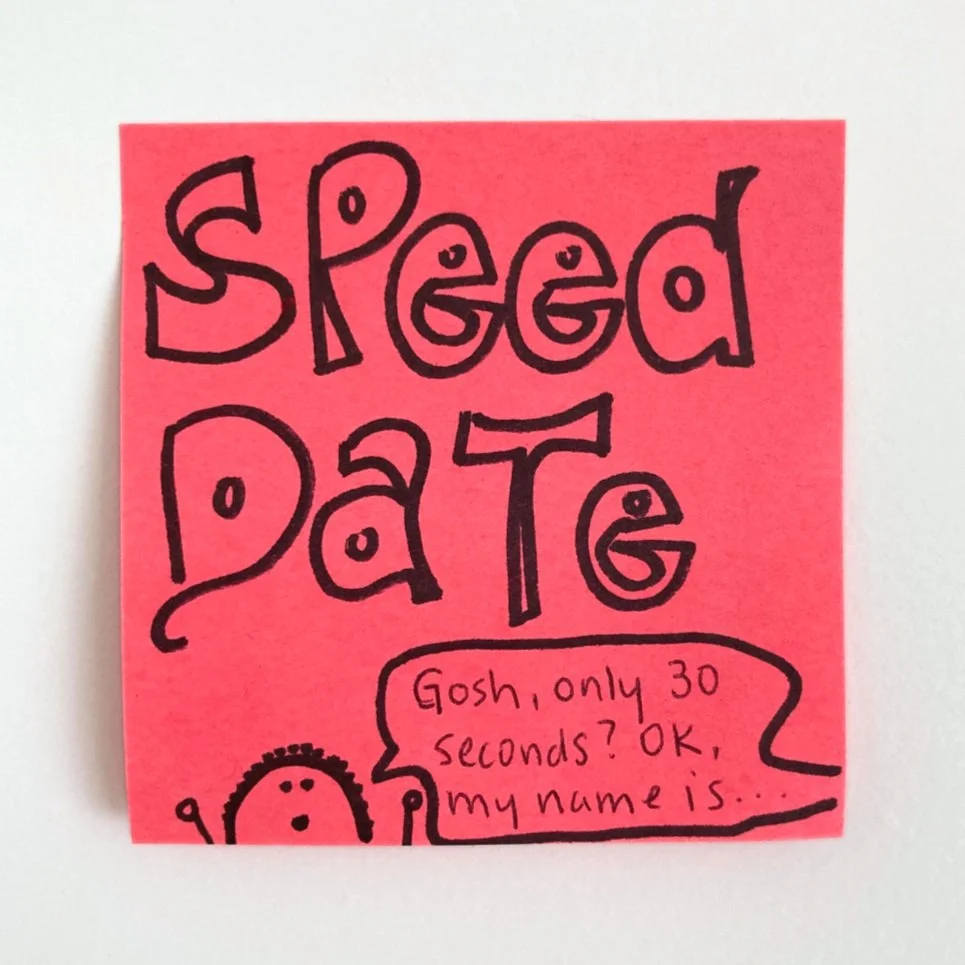 SPeed
DaTe
Gosh, only 30
seconds? OK,
my name is...